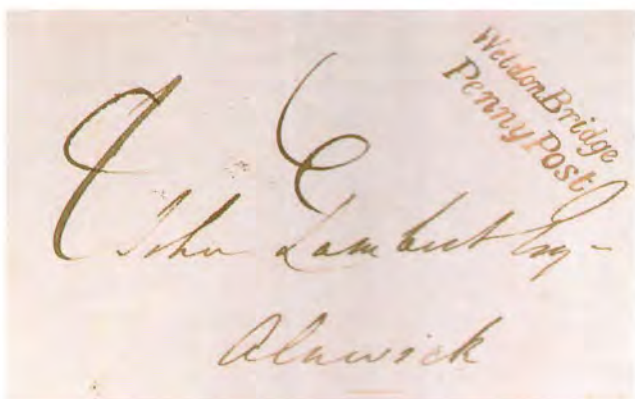 Weldon Bridge
Penny Post
John Lambert Esq
Alnwick